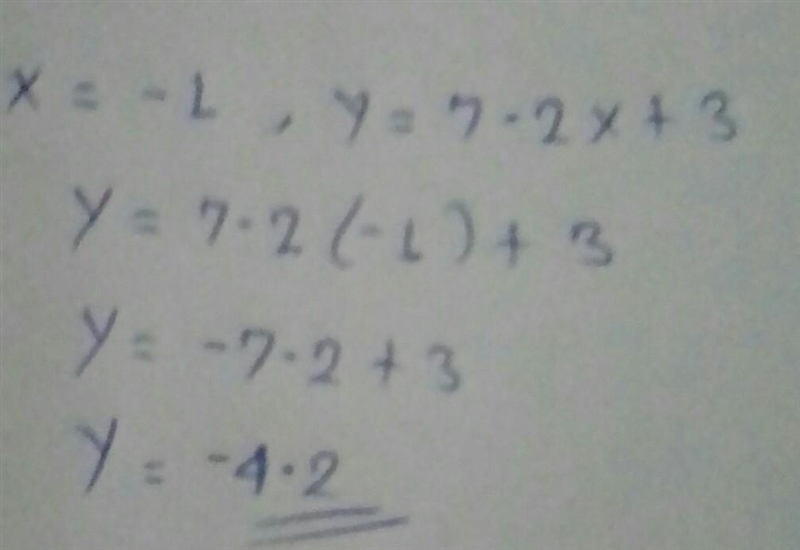 x = -1, y = 7.2x + 3
y = 7.2(-1) + 3
y = -7.2 + 3
y = -4.2